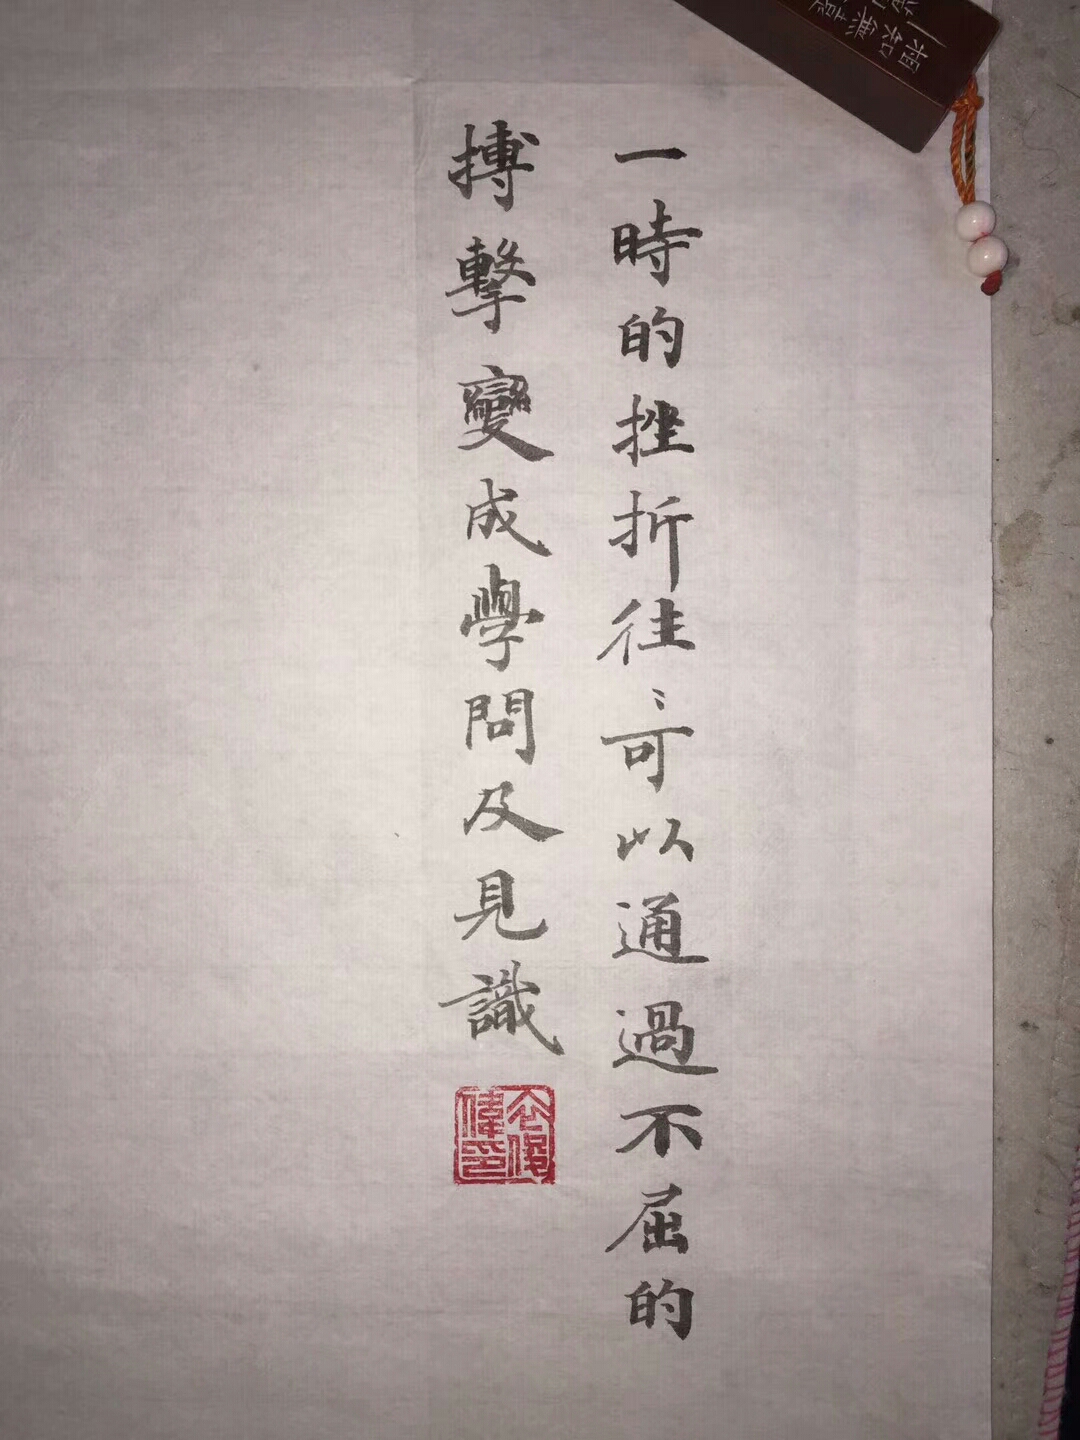 一時的挫折往〻可以通過不屈的
搏擊變成學問及見識